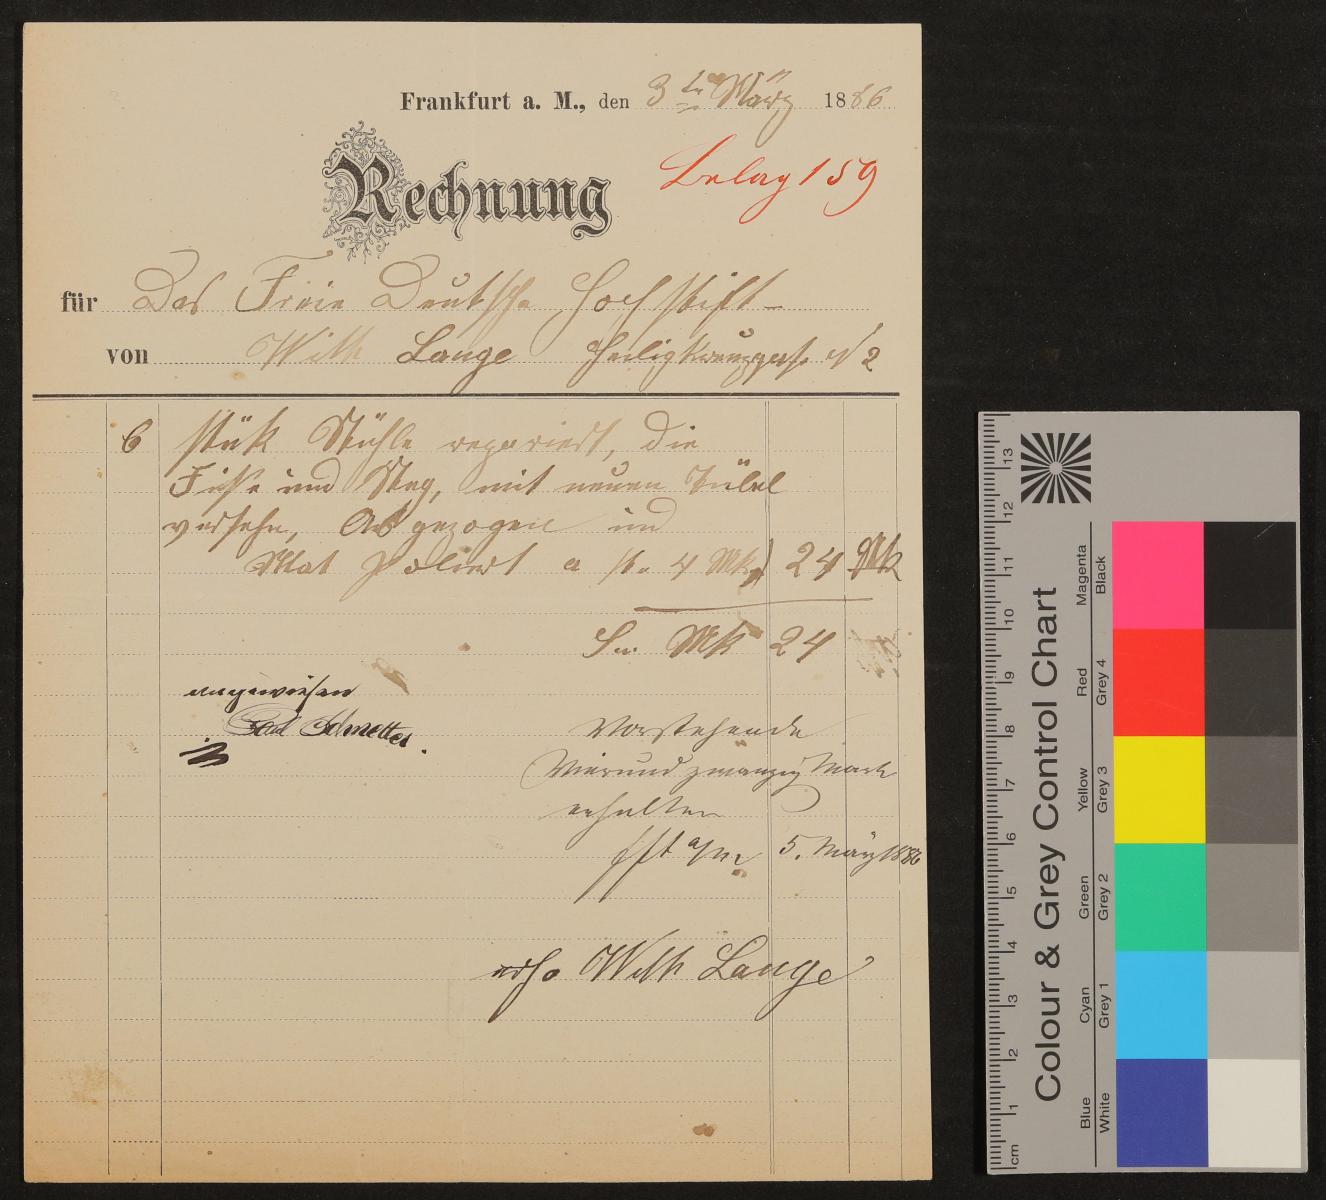 Frankfurt a. M., den 3ten März 1886
Rechnung
Beleg 159
für Das Freie Deutsche Hochstift
von Wilh Lange Heiligkreuzgasse N 2
6 stük Stühle repariert, die
Füsse und Steg, mit neuen Dübel
versehn, Abgezogen und
Mat poliert a st. 4 Mk 24 Mk
Sn. Mk 24
angewiesen
Vorstehende
Vierundzwanzig Mark
erhalten
Fft a/m 5. März 1886
Wilh Lange
Colour & Grey Control Chart
Blue Cyan Green Yellow Red Magenta
White Grey 1 Grey 2 Grey 3 Grey 4 Black
cm 1 2 3 4 5 6 7 8 9 10 11 12 13